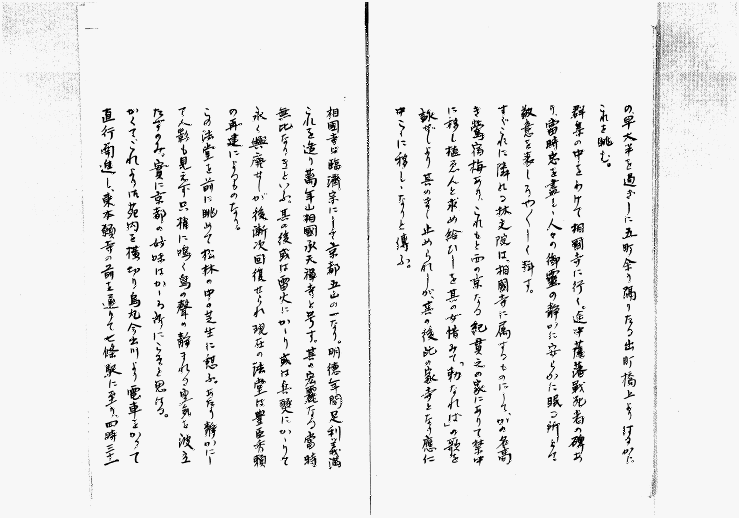 の早大半を過ぎしに五町余り隔りたる出町橋上より
これを眺む。
群集の中をわけて相國寺に行く。途中薩藩戦死者の碑あ
り、當時忠を盡し人々の御靈の静かに安らかに眠る所とて
敬意を表しうやくしく拜す。
すぐこれに隣れる林光院は、相國寺に属するものにして、かの名高
き鶯宿梅あり、これもと西の京なる紀貫之の家にありて禁中
に移し植ゑんと求め給ひしを其の女惜みて「勅なれば」の歌を
詠ぜしより其のまゝ止められしが、其の後此の家寺となり應仁
中こゝに移しゝなりと傳ふ。
相國寺は臨濟宗にして京都五山の一なり。明德年間足利義滿
これを造り萬年山相國承天禅寺と号す。其の宏麗なる當時
無比なりきといふ、其の後或は雷火にかゝり或は兵燹にかゝりて
永く興廃せしが後漸次回復せられ現在の法堂は豊臣秀頼
の再建によるものなり。
この法堂を前に眺めて松林の中の芝生に憩ふ。あたり静かにし
て人影も見えず只梢に鳴く鳥の聲の静まれる空気を波立
たすのみ、實に京都の妙味はかゝる所にこそと思はる。
かくてこれより御苑内を横切り烏丸今出川より電車をかつて
直行南進し、東本願寺の前を通りて七條駅に至り、四時三十